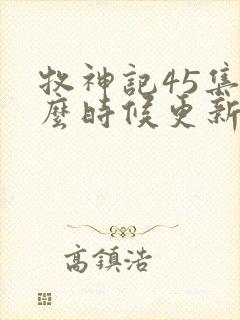 牧神記45集
麼時候更新
高鎮浩